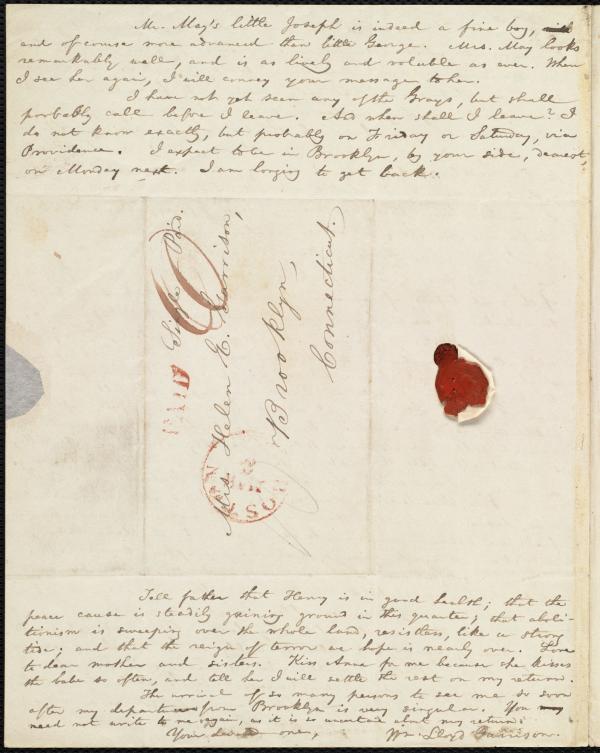 Mr. May's little Joseph is indeed a fine boy,
and of course more advanced than little George. Mrs. May looks
remarkably well, and is as lively and voluble as ever. When
I see her again, I will convey your message to her.
I have not yet seen any of the Grays, but shall
probably call before I leave. And when shall I leave? I
do not know exactly, but probably on Friday or Saturday, via
Providence. I expect to be in Brooklyn, by your side, dearest
on Monday next. I am longing to get back.
Single Paid.
PAID
6
Mrs. Helen E. Garrison,
Brooklyn,
Connecticut.
BOSTON
MAR
Tell father that Henry is in good health; that the
peace cause is steadily gaining ground in this quarter; that aboli-
tionism is sweeping over the whole land, resistless, like a strong
tide; and that the reign of terror we hope is nearly over. Love
to dear mother and sisters. Kiss Anna for me because she kisses
the babe so often, and tell her I will settle the rest on my return.
The arrival of so many persons to see me so soon
after my departure from Brooklyn is very singular. You
need not write to me again, as it is so uncertain about my return.
Your one,
Wm. Lloyd Garrison.